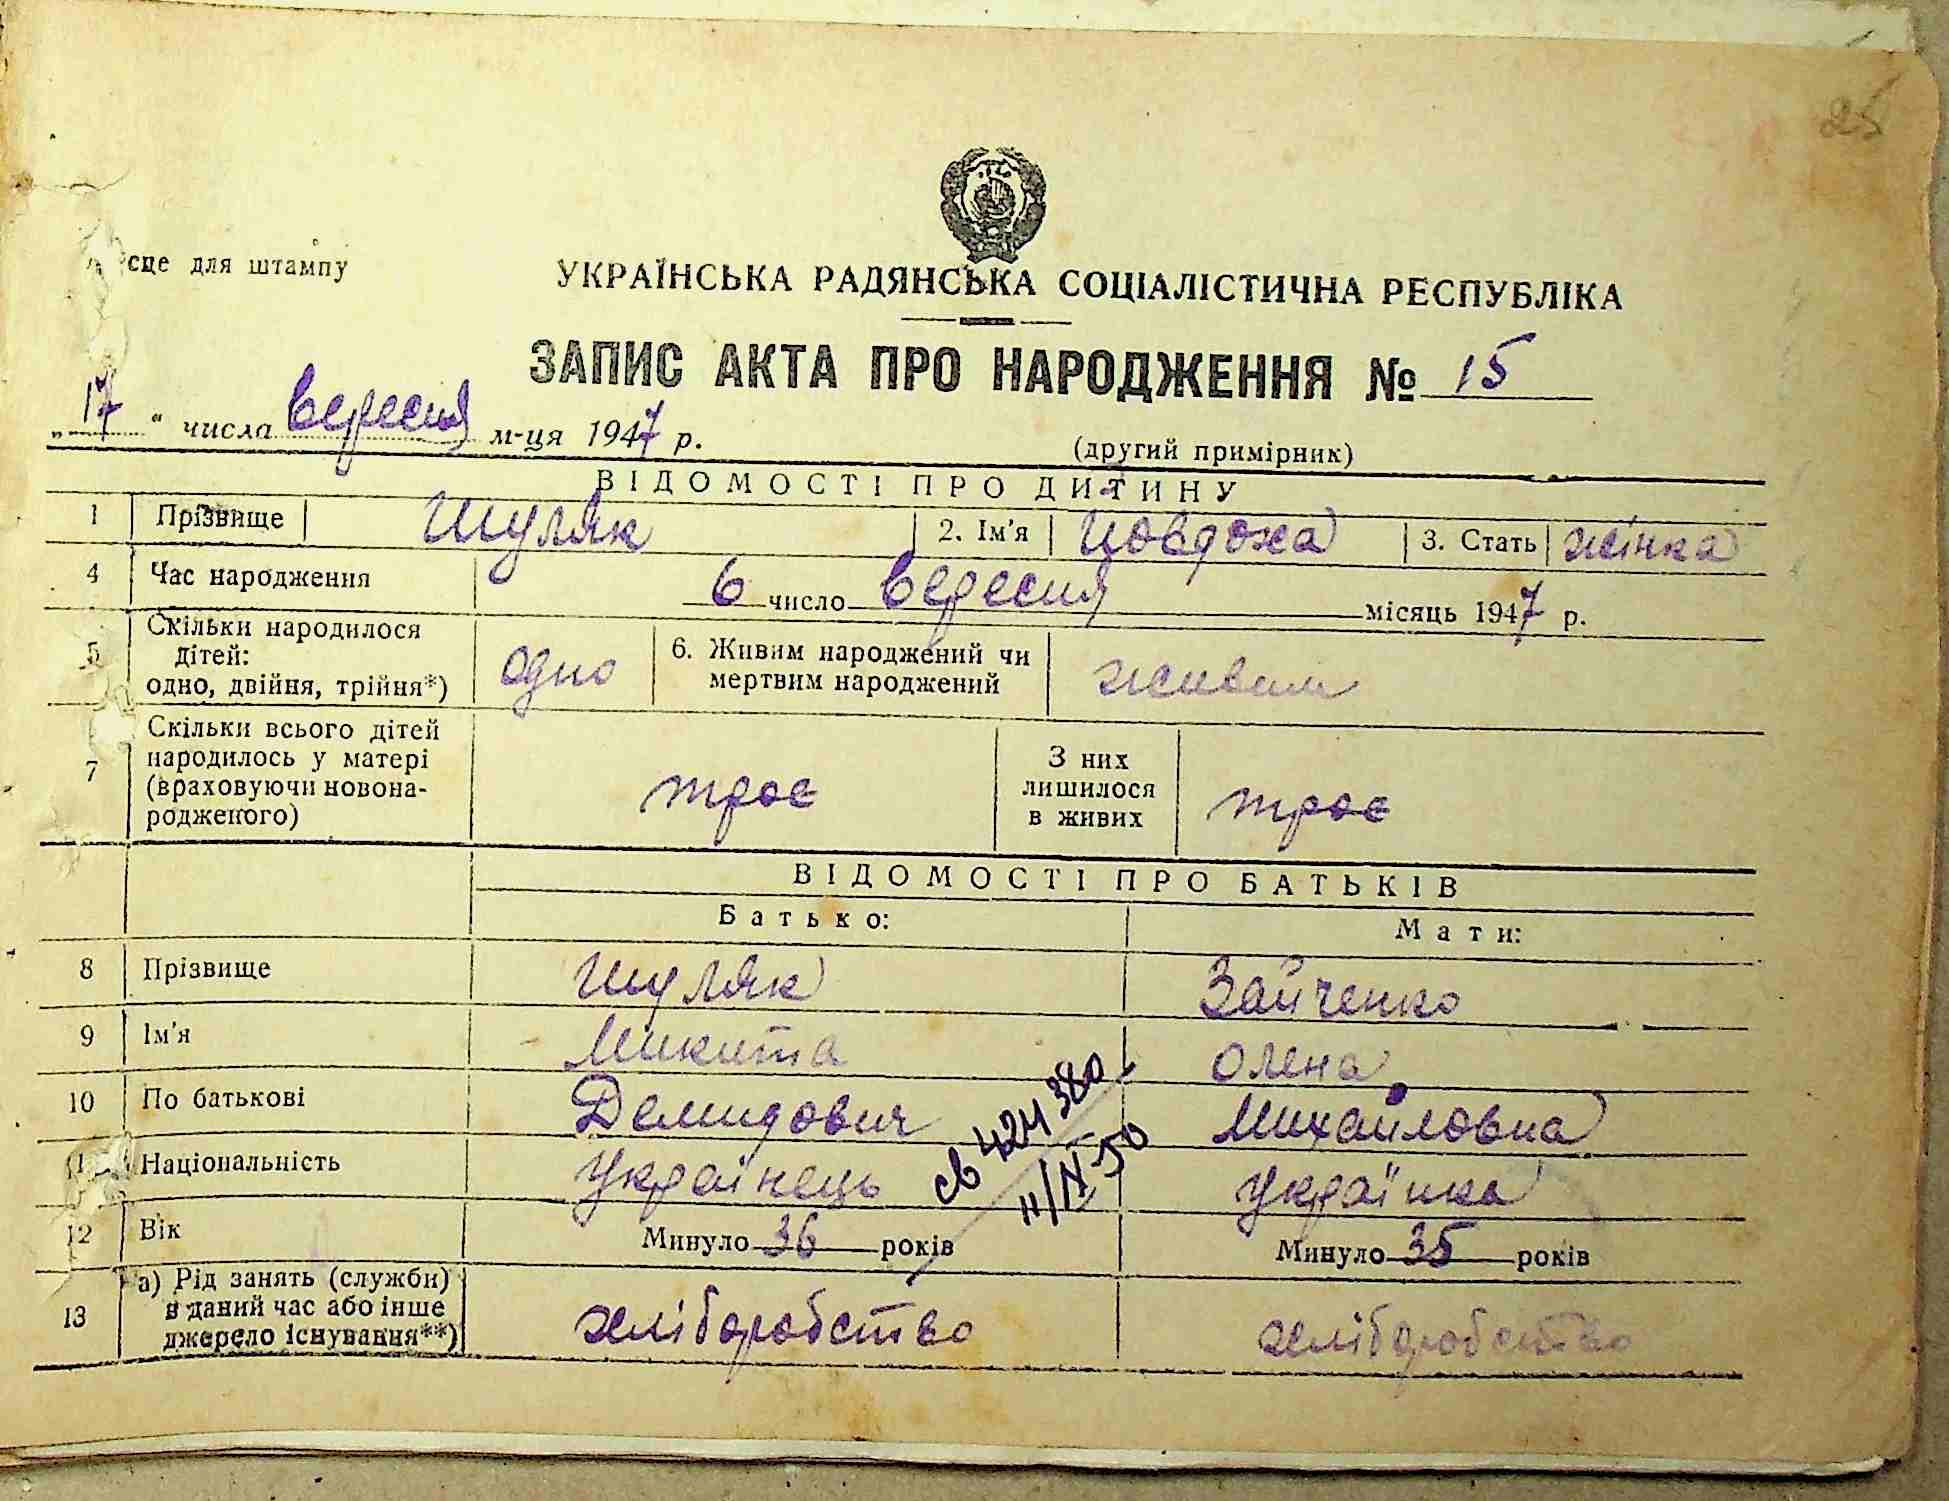 25
сце для штампу
УКРАЇНСЬКА РАДЯНСЬКА СОЦІАЛІСТИЧНА РЕСПУБЛІКА
ЗАПИС АКТА ПРО НАРОДЖЕННЯ № 15
„17“ числа вересня м-ця 1947 р.
(другий примірник)
ВІДОМОСТІ ПРО ДИТИНУ
1 Прізвище Шуляк 2. Ім'я Йовдоха 3. Стать жінка
4 Час народження 6 число вересня місяць 1947 р.
5 Скільки народилося дітей: одно, двійня, трійня*) одно 6. Живим народжений чи мертвим народжений живим
7 Скільки всього дітей народилось у матері (враховуючи новонародженого) троє З них лишилося в живих троє
ВІДОМОСТІ ПРО БАТЬКІВ
Батько: Мати:
8 Прізвище Шуляк Зайченко
9 Ім'я Микита Олена
10 По батькові Демидович Михайловна
11 Національність Українець Українка
св 424380
11/IV 50
12 Вік Минуло 36 років Минуло 35 років
13 а) Рід занять (служби) в даний час або інше джерело існування**) хліборобство хліборобство